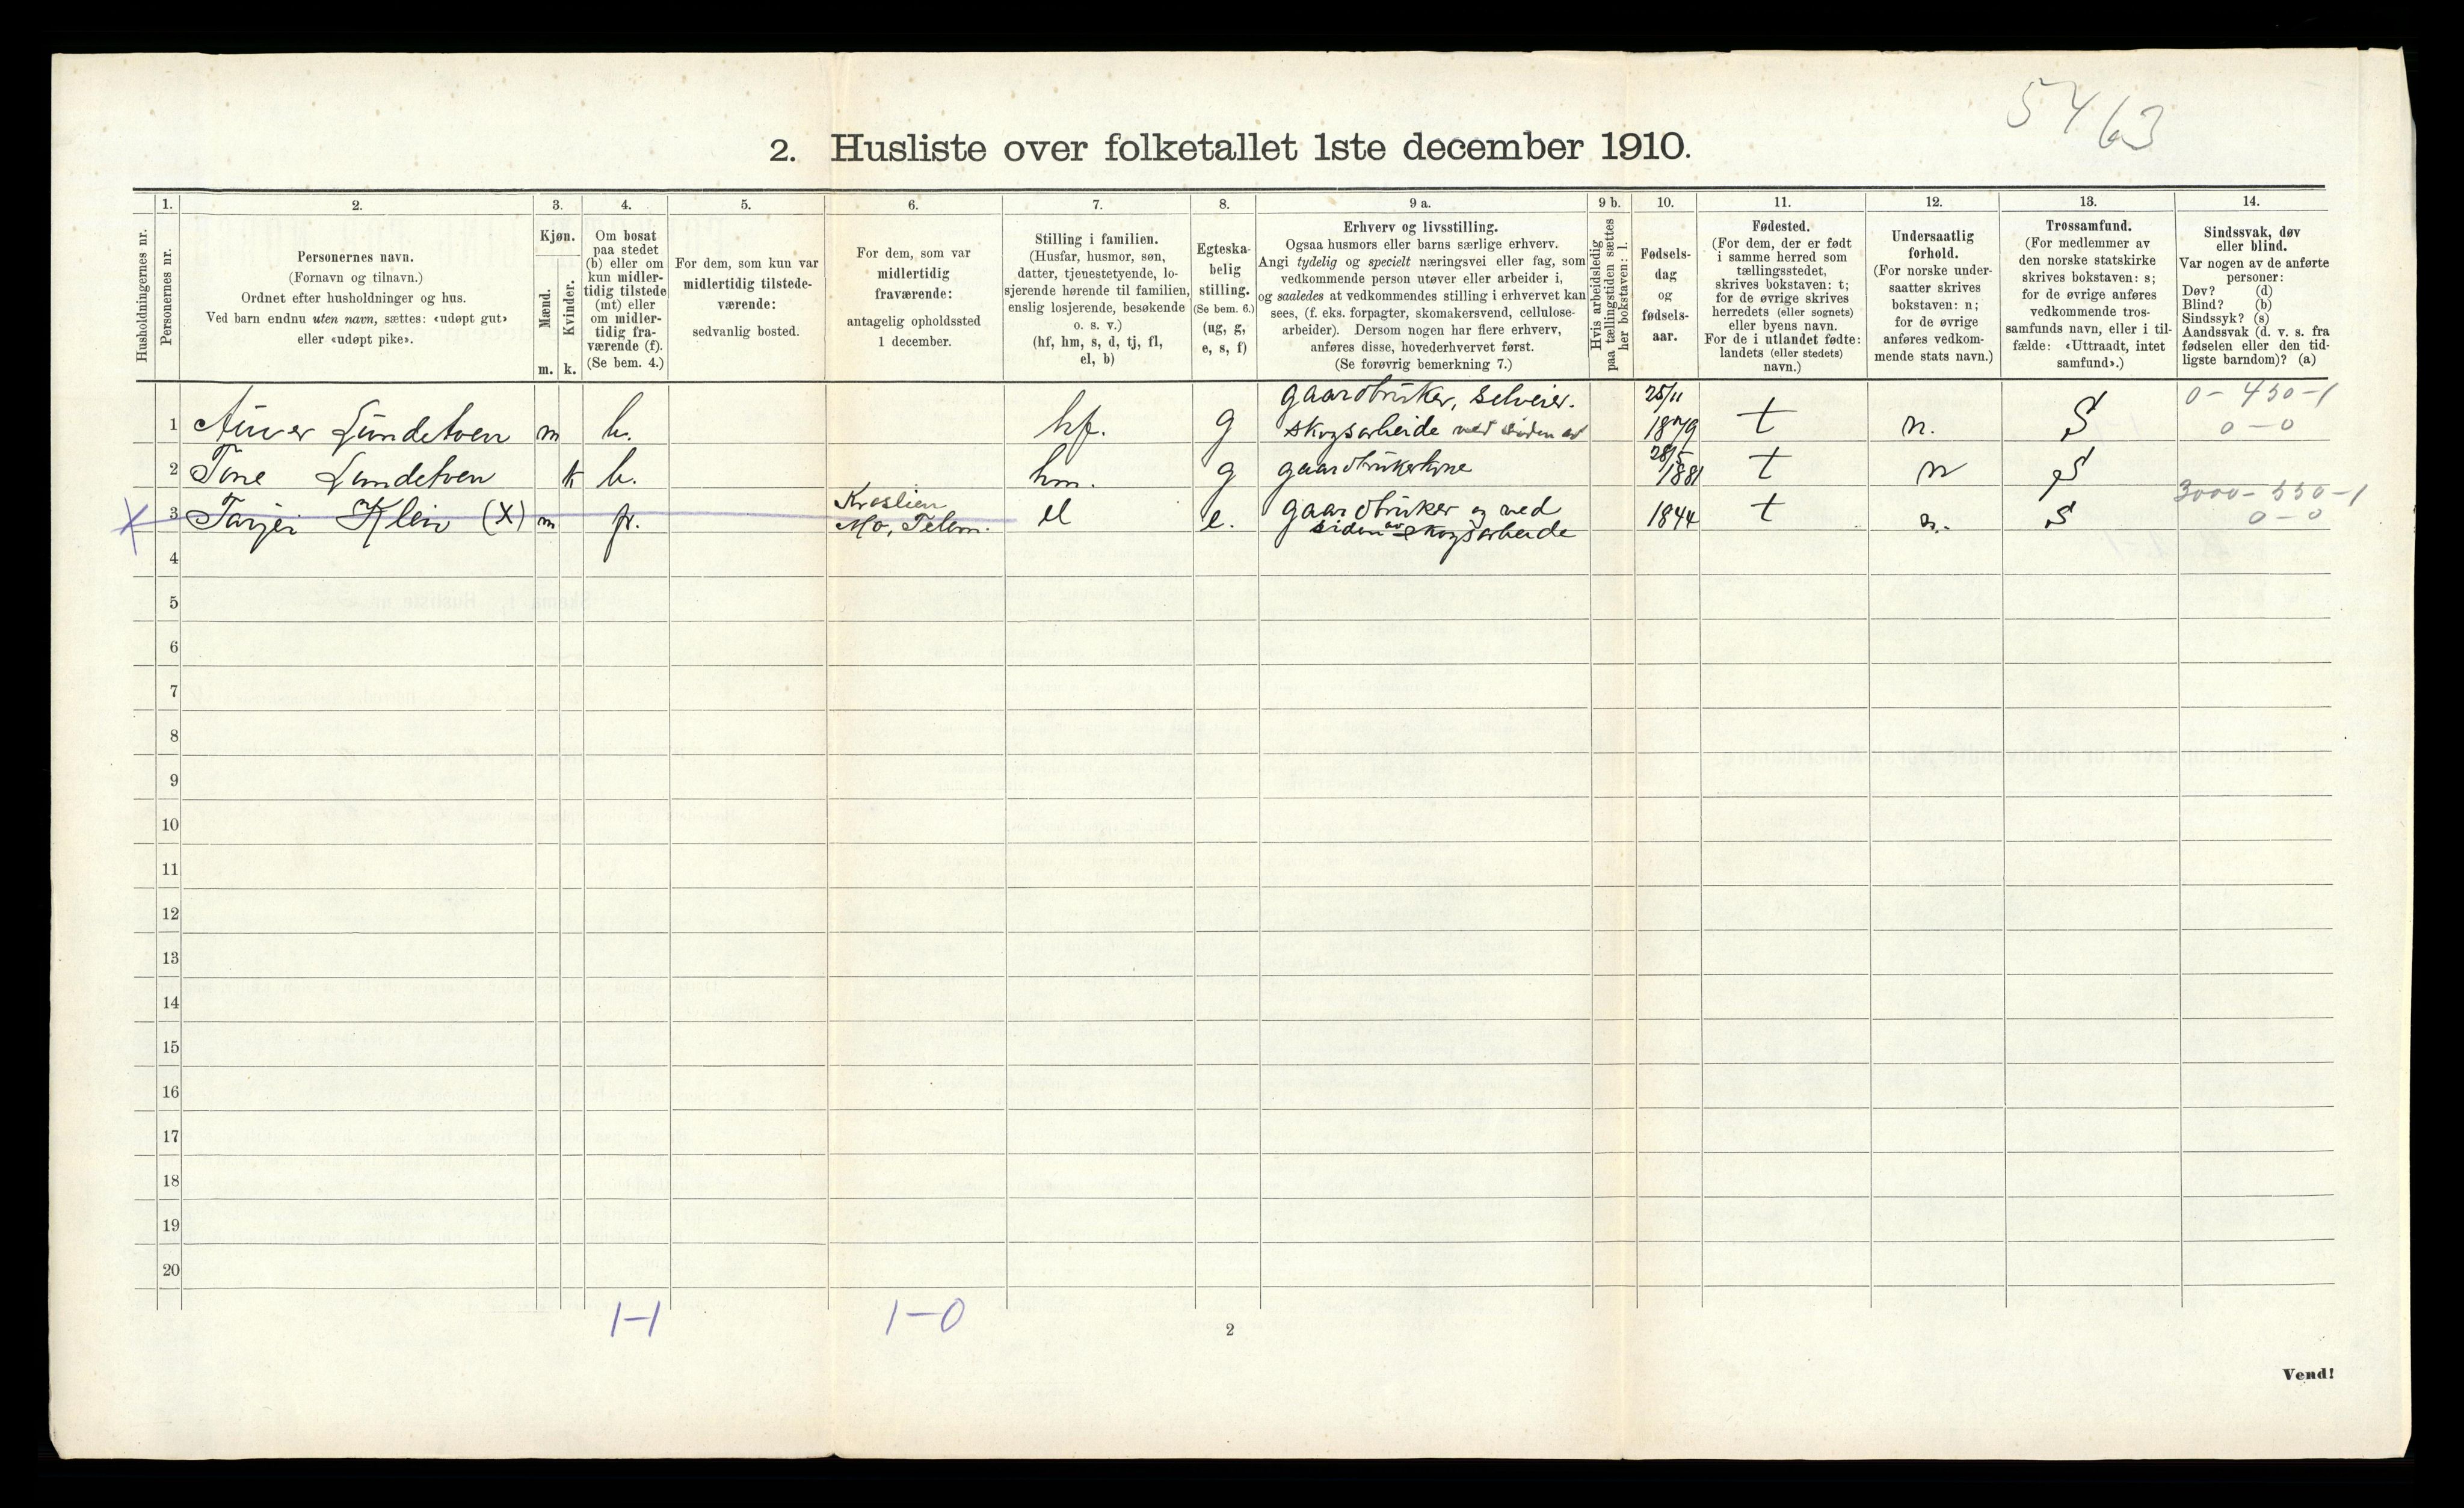 5463
2. Husliste over folketallet 1ste december 1910.
Husholdningernes nr.
1.
Personernes nr.
2.
Personernes navn.
(Fornavn og tilnavn.)
Ordnet efter husholdninger og hus.
Ved barn endnu uten navn, sættes: «udøpt gut»
eller «udøpt pike».
3.
Kjøn.
Mænd.
Kvinder.
m. k.
4.
Om bosat
paa stedet
(b) eller om
kun midler-
tidig tilstede
(mt) eller
om midler-
tidig fra-
værende (f).
(Se bem. 4.)
5.
For dem, som kun var
midlertidig tilstede-
værende:
sedvanlig bosted.
6.
For dem, som var
midlertidig
fraværende:
antagelig opholdssted
1 december.
7.
Stilling i familien.
(Husfar, husmor, søn,
datter, tjenestetyende, lo-
sjerende hørende til familien,
enslig losjerende, besøkende
o. s. v.)
(hf, hm, s, d, tj, fl,
el, b)
8.
Egteska-
belig
stilling.
(Se bem. 6.)
(ug, g,
e, s, f)
9 a.
Erhverv og livsstilling.
Ogsaa husmors eller barns særlige erhverv.
Angi tydelig og specielt næringsvei eller fag, som
vedkommende person utøver eller arbeider i,
og saaledes at vedkommendes stilling i erhvervet kan
sees, (f. eks. forpagter, skomakersvend, cellulose-
arbeider). Dersom nogen har flere erhverv,
anføres disse, hovederhvervet først.
(Se forøvrig bemerkning 7.)
9 b.
Hvis arbeidsledig
paa tællingstiden sættes
her bokstaven: l.
10.
Fødsels-
dag
og
fødsels-
aar.
11.
Fødested.
(For dem, der er født
i samme herred som
tællingsstedet,
skrives bokstaven: t;
for de øvrige skrives
herredets (eller sognets)
eller byens navn.
For de i utlandet fødte:
landets (eller stedets)
navn.)
12.
Undersaatlig
forhold.
(For norske under-
saatter skrives
bokstaven: n;
for de øvrige
anføres vedkom-
mende stats navn.)
13.
Trossamfund.
(For medlemmer av
den norske statskirke
skrives bokstaven: s;
for de øvrige anføres
vedkommende tros-
samfunds navn, eller i til-
fælde: «Uttraadt, intet
samfund».)
14.
Sindssvak, døv
eller blind.
Var nogen av de anførte
personer:
Døv? (d)
Blind? (b)
Sindssyk? (s)
Aandssvak (d. v. s. fra
fødselen eller den tid-
ligste barndom)? (a)
gaardbruker, selveier. 25/11 0-450-1
1 Lundetven m b. hf. g skogsarbeide ved siden av 1879 t n. S 0-0
28/5
2 Tone Lundetven k b. hm. g gaardbrukerkone 1881 t n S
X 3 Tarjei Klein (X) m fr. Mo, Telem. el e. gaardbruker og ved 1844 t n. S 3000-550-1
siden av skogsarbeide 0-0
4
5
6
7
8
9
10
11
12
13
14
15
16
17
18
19
20
1-1 1-0
2
Vend!